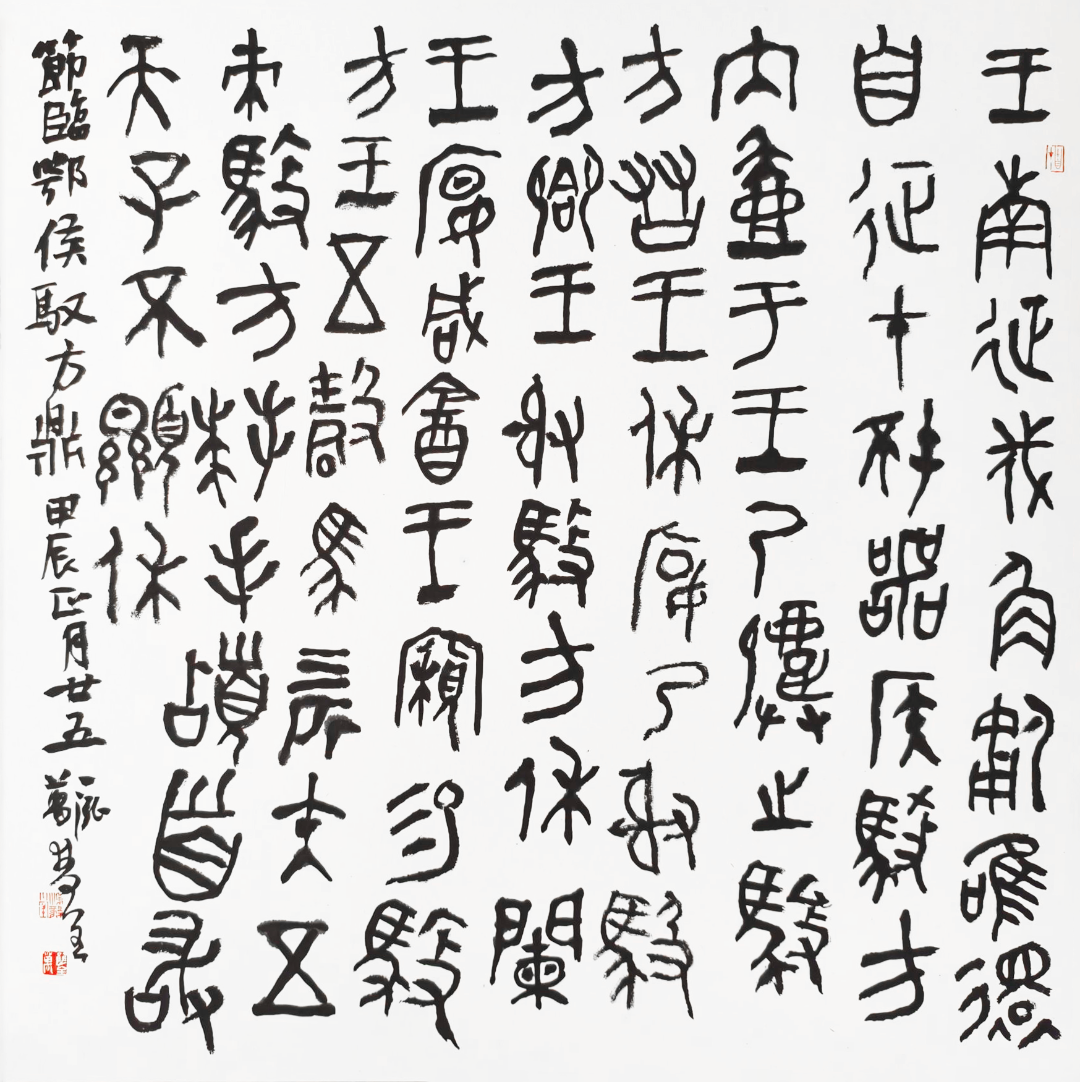 王南征伐角僪唯還
自征才坯噩侯馭方
内壺于王乃祼之馭
方侑王休匽乃射馭
方卿王射馭方休闌
王宴咸酓王寴易馭
方玉五瑴馬四匹矢五
束馭方拜手稽首敢
天子不顯休
節臨鄂侯馭方鼎甲辰正月廿五